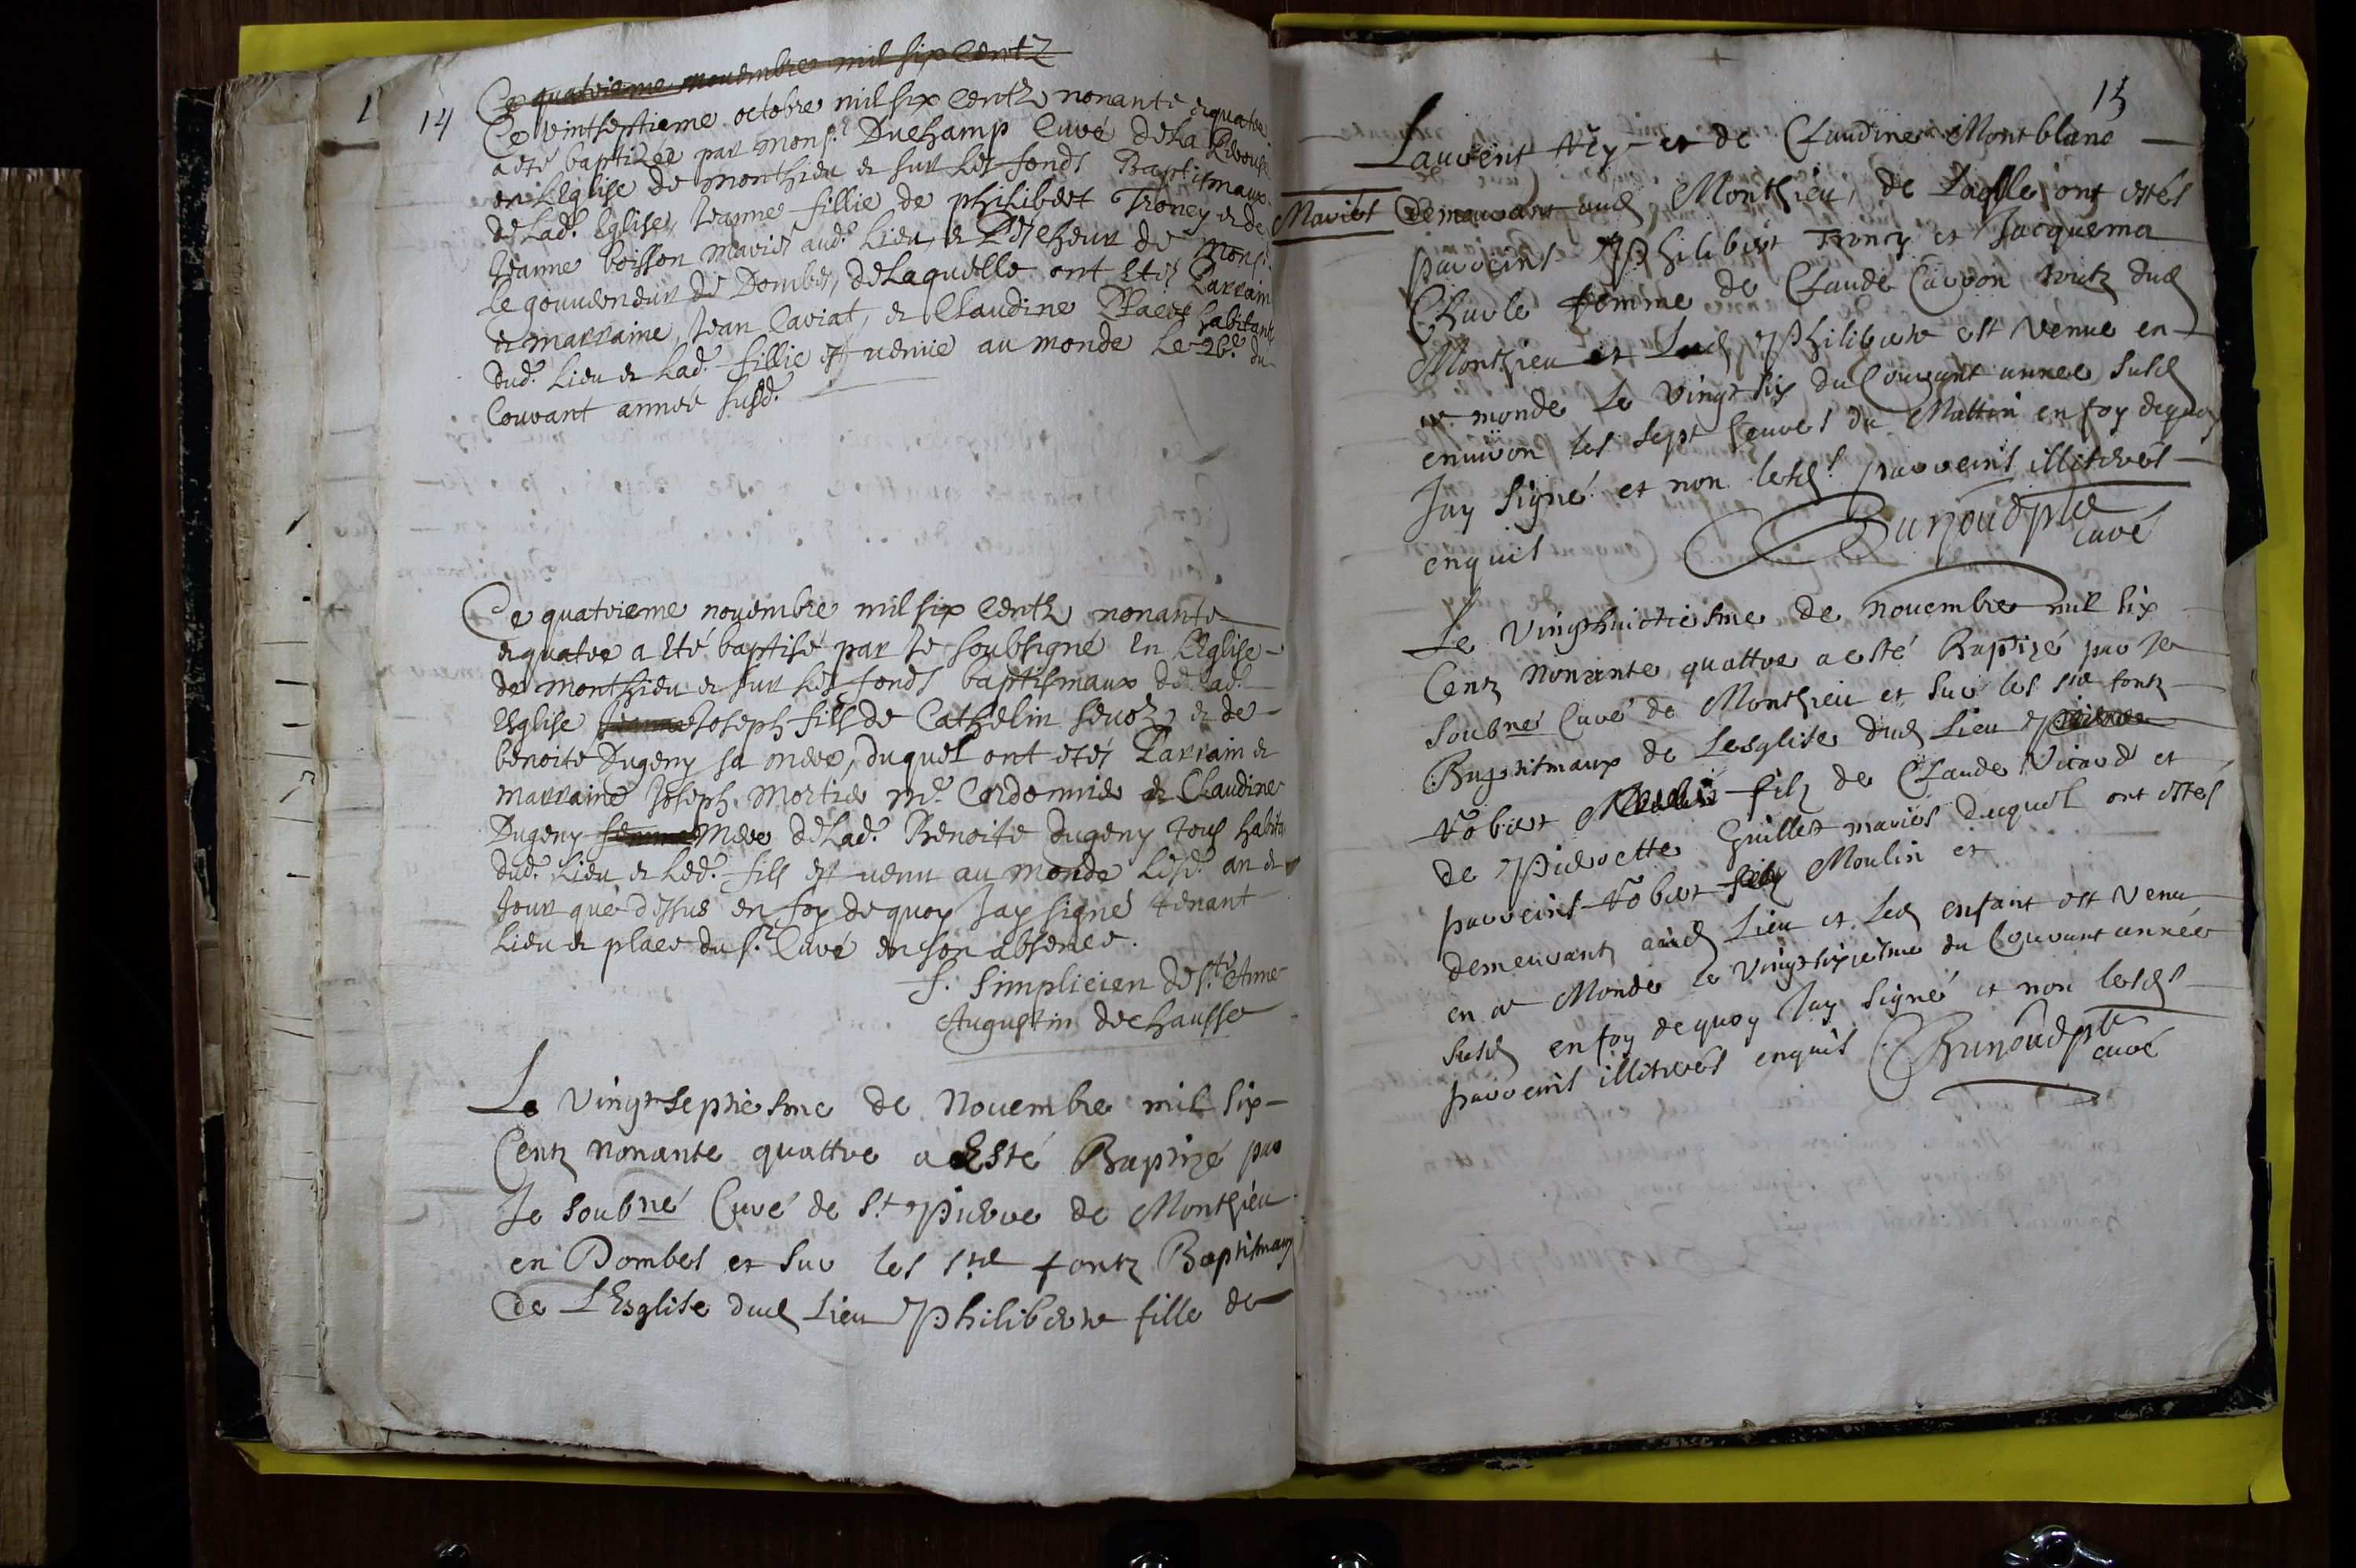 14
Ce quatrieme nouembre mil six centz
Ce vintseptieme octobre mil six centz nonante et quatre
a eté baptizée par Mons.r Duchamp Curé de La
en LEglise de monthieu et sur Les fonds Baptismaux
de Lad.e Eglise, Jeanne fillie de philibert Troncy et de
Jeanne boisson mariés aud.t Lieu, et Pêcheur de Mons.r
Le gouuerneur de Dombes, de Laquelle ont etés Parrain
et marraine, Jean Caviat, et Claudine Place habitants
dud.t Lieu et Lad.e fillie est venüe au monde Le 26.e du
Courant année susd.e
Ce quatrieme nouembre mil six centz nonante
et quatre a eté baptisé par Je soubsigné En LEglise
de monthieu et sur Les fonds baptismaux de Lad.e
Esglise Joseph fils de Cathelin seuoz, et de
benoite Dugeny sa mere, duquel ont etés Parrain et
marraine Joseph Mortier M.e Cordonnier et Claudine
Dugeny femme Mere de Lad.e Benoite dugeny Tous habita
dud.t Lieu et Led.t fils est venu au monde Lesd.t an et
Jour que dessus en foy de quoy Jay signé tenant
Lieu et place du s.r Curé en son absence.
f. Simplicien de s.te Anne
Augustin dechaussé
Le Vingtseptiesme de Nouembre mil six
Centz Nonante quattre a Esté Baptizé par
Je soubné Curé de s.t Pierre de Monthieu
en Dombes et sur les s.td fontz Baptismaux
de LEsglise dud Lieu Philiberte fille de
15
Laurent Rey et de Claudine Montblanc
Mariés demeurant aud Monthieu, de Laqlle ont estés
parreins Philibert Troncy et Jacquema
Charle femme de Claude Carron toutz dud
Monthieu et Lad Philiberte est Venue en
ce monde Le Vingt six du Courant annee susd
enuiron les sept heures du Mattin en foy de quoy
Jay signé et non lesd.s parreins illiterés
enquis Burjoud pbre
curé
Le Vingthuictiesme de nouembre mil six
Centz Nonante quattre a esté Baptizé par Je
soubné Curé de Monthieu et sur les std fontz
Baptismaux de Lesglise dud Lieu
Robert filz de Claude Vicard et
de Pierrette Guillet mariés duquel ont estés
parreins Robert Moulin et
demeurant aud Lieu et Led enfant est Venu
en ce Monde le Vingtsixiesme du Courant année
susd en foy de quoy Jay signé et non lesd.s
parreins illiterés enquis Burjoud pbre
curé